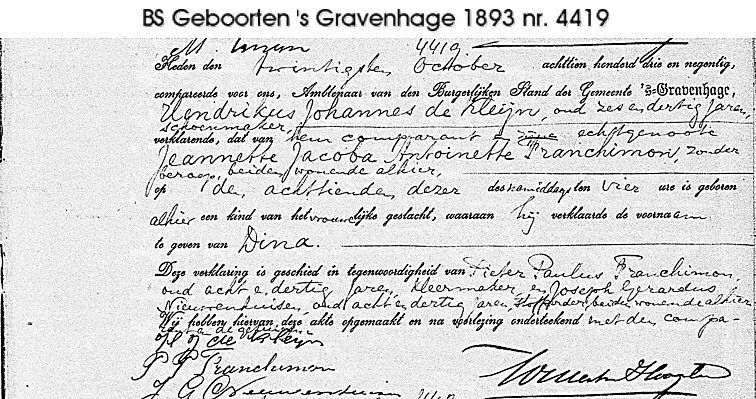 BS Geboorten 's Gravenhage 1893 nr. 4419
4419.
Heden den twintigsten October achttien honderd drie en negentig,
compareerde voor ons, Ambtenaar van den Burgerlijken Stand der Gemeente 's-Gravenhage,
Hendrikus Johannes de Kleijn, oud zes en dertig jaren,
schoenmaker,
verklarende, dat van hem comparant en zijne echtgenoote
Jeannette Jacoba Antoinette Franchimon, zonder
beroep, beiden wonende alhier,
op den achttienden dezer des namiddags ten vier ure is geboren
alhier een kind van het vrouwelijke geslacht, waaraan hij verklaarde de voornaam
te geven van Dina.
Deze verklaring is geschied in tegenwoordigheid van Pieter Paulus Franchimon,
oud acht en dertig jaren, kleermaker, en Joseph Gerardus
Nieuwenhuisen, oud acht en dertig jaren, beiden wonende alhier.
Wij hebben hiervan deze akte opgemaakt en na voorlezing onderteekend met den compa-
rant en de getuigen
H J de Kleijn
P P Franchimon
J G Nieuwenhuisen